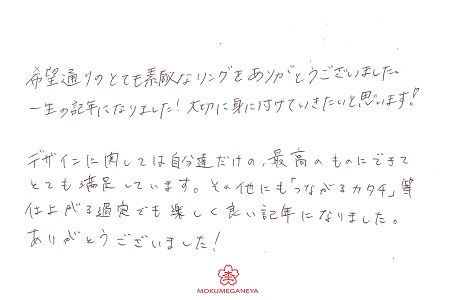 希望通りのとても素敵なリングをありがとうございました。
一生の記年になりました!大切に身に付けていきたいと思います!
デザインに関しては自分達だけの、最高のものにできて
とても満足しています。その他にも「つながるカタチ」等
仕上がる過定でも楽しく良い記年になりました。
ありがとうございました!
MOKUMEGANEYA